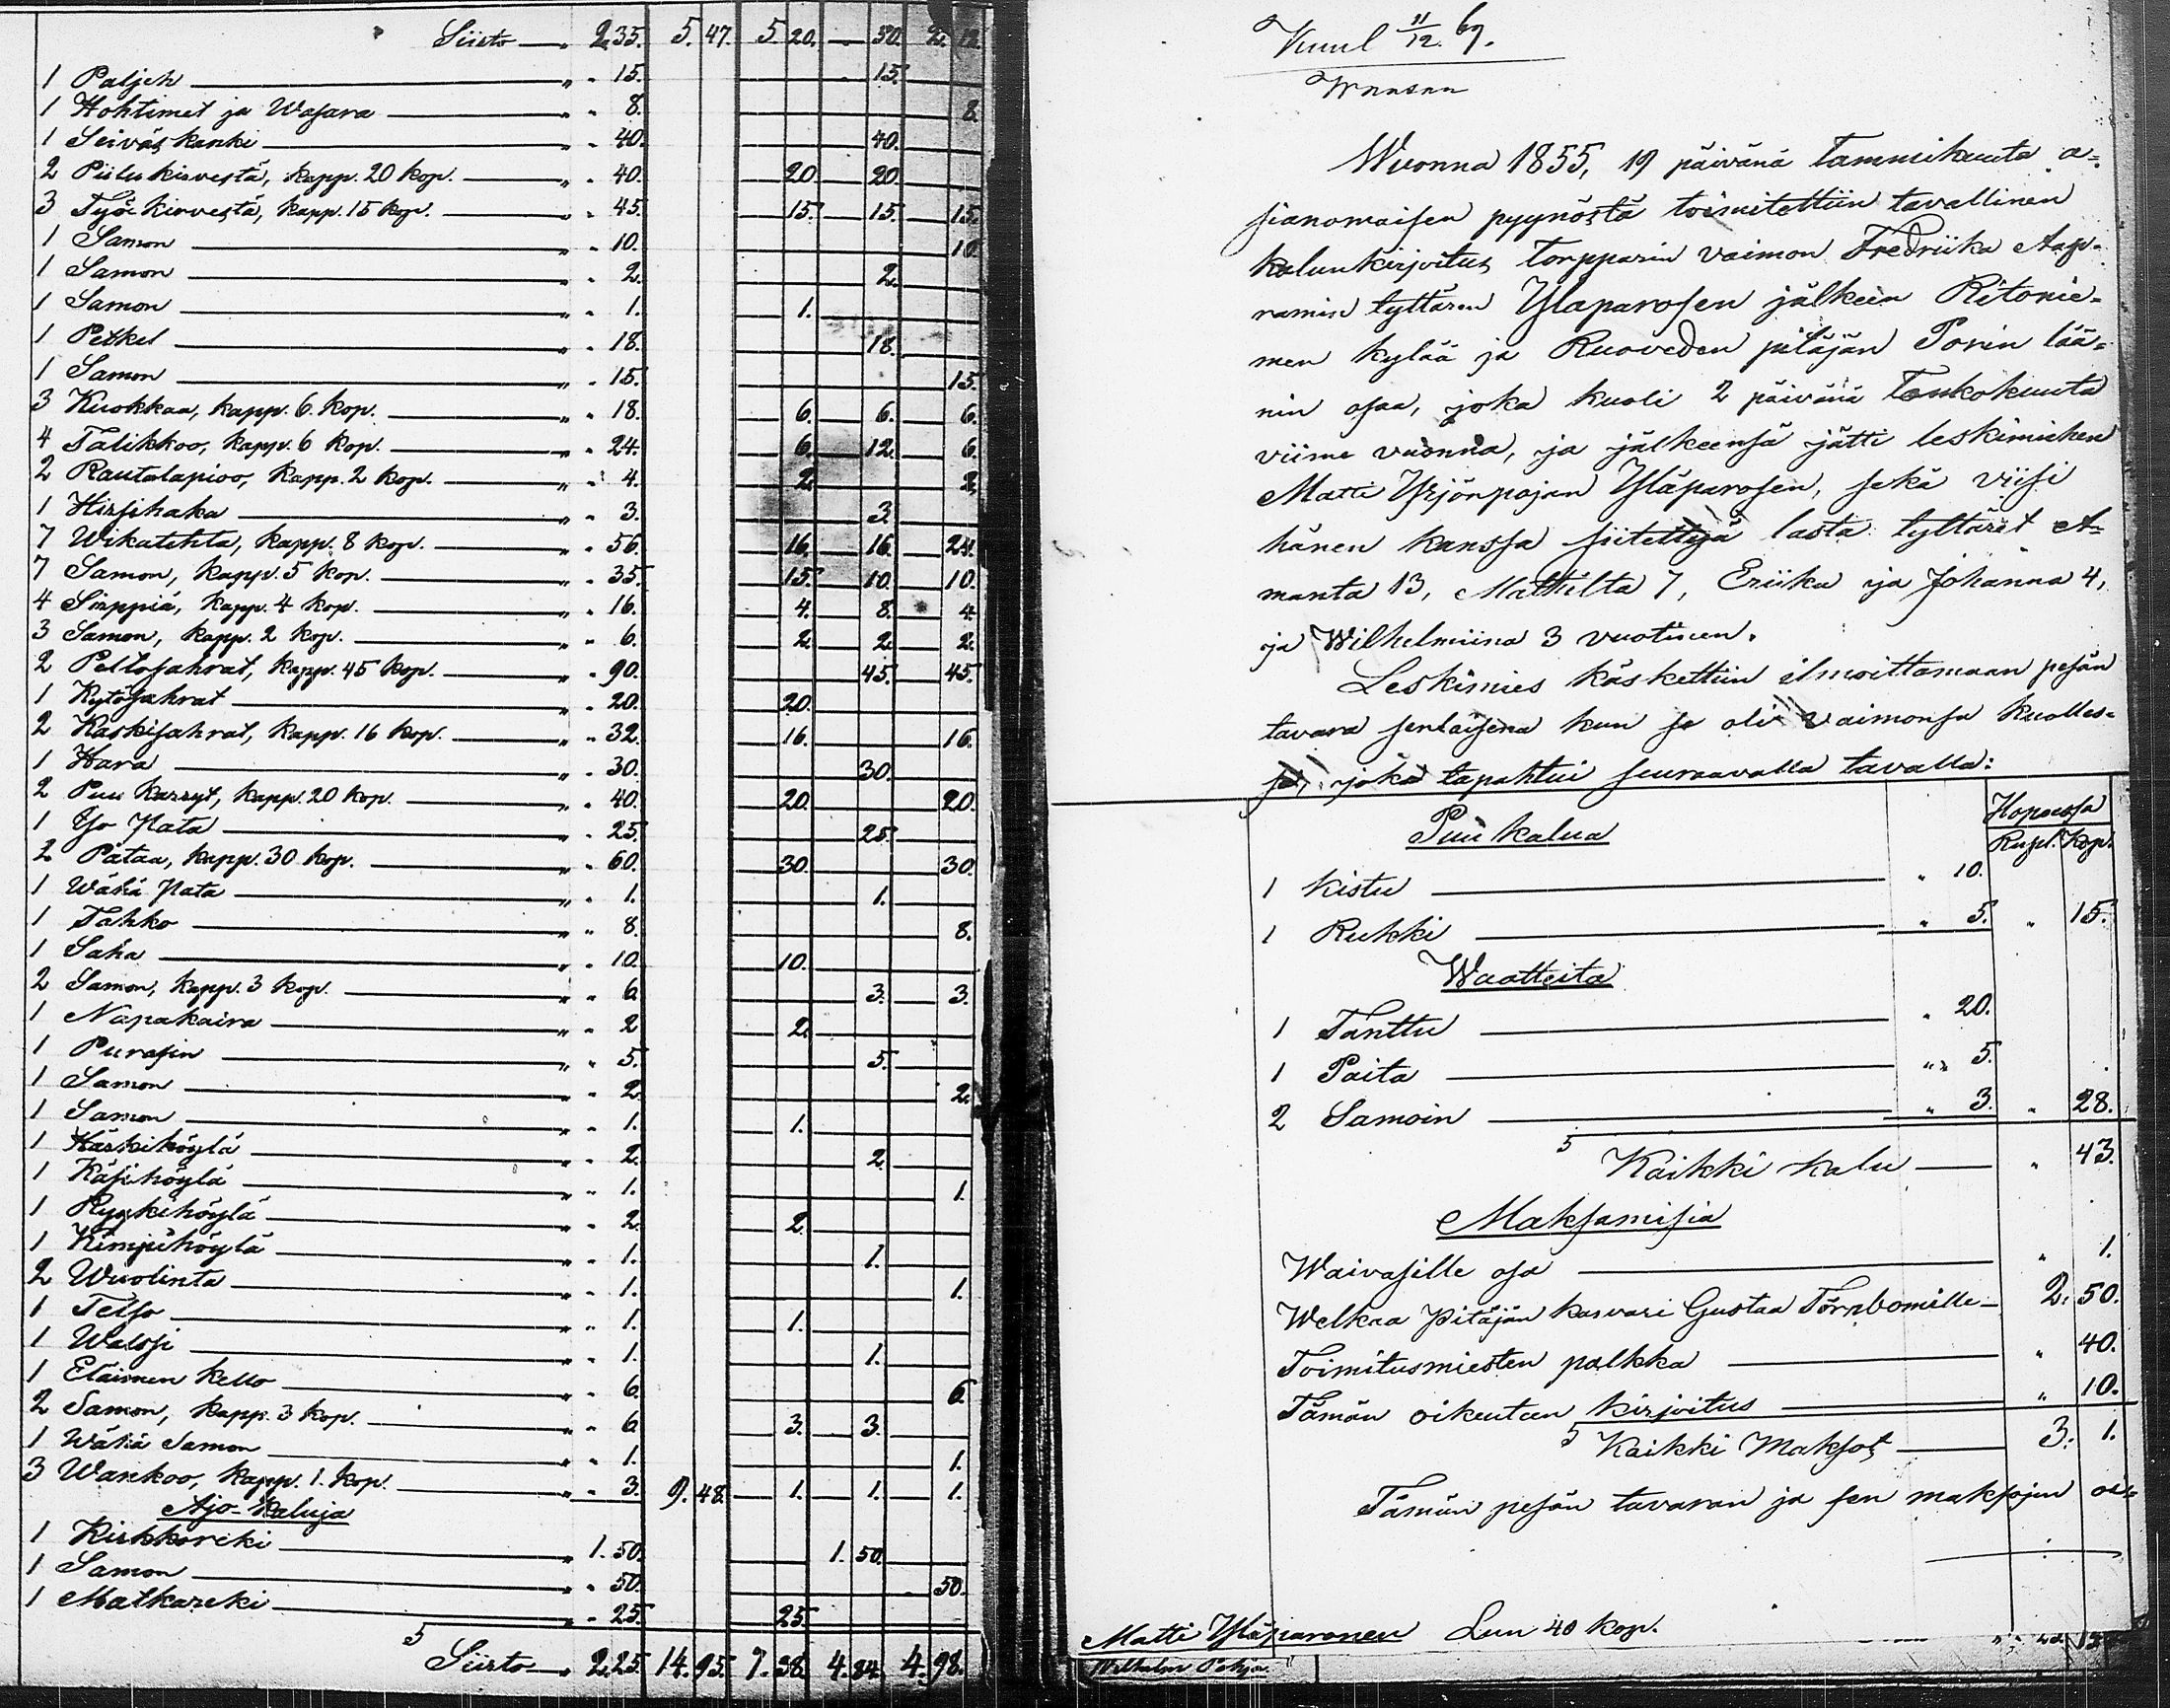 Siirto — „ 2.35. 5. 47. 5 20. — 50. 2. 12.
1 Paljeh — „ „ 15. 15.
1 Hohtimet ja Wasara — „ „ 8. 8.
1 Seiväs kanki — „ „ 40. 40.
2 Piilu kirvestä, kapp. 20 kop. — „ „ 40. 20. 20.
3 Työ kirvestä, kapp. 15 kop. — „ „ 45. 15. 15. 15.
1 Samon — „ „ 10. 10
1 Samon — „ „ 2. 2.
1 Samon — „ „ 1. 1.
1 Petkel — „ „ 18. 18.
1 Samon — „ „ 15. 15.
3 Kuokkaa, kapp. 6. kop. — „ „ 18. 6. 6. 6.
4 Talikkoo, kapp. 6 kop. — „ „ 24. 6. 12. 6.
2 Rautalapioo, kapp. 2 kop. — „ „ 4. 2. 2.
1 Hirsihaka — „ „ 3. 3.
7 Wikatehta, kapp. 8 kop. — „ „ 56. 16. 16. 24.
7 Samon, kapp. 5 kop. — „ „ 35. 15. 10. 10.
4 Sirppiä, kapp. 4 kop. — „ „ 16. 4. 8. 4.
3 Samon, kapp. 2 kop. — „ „ 6. 2. 2. 2.
2 Peltosahrat, kapp. 45 kop. — „ „ 90. 45. 45.
1 Kytösahrat — „ „ 20. 20.
2 Kaskisahrat, kapp. 16 kop. — „ „ 32. 16. 16.
1 Hara — „ „ 30. 30.
2 Puu karryt, kapp. 20 kop. — „ „ 40. 20. 20.
1 Yso Pata — „ „ 25. 25.
2 Pataa, kapp. 30 kop. — „ „ 60. 30. 30.
1 Wähä Pata — „ „ 1. 1.
1 Tahko — „ „ 8. 8.
1 Saha — „ „ 10. 10.
2 Samon, kapp. 3 kop. — „ „ 6. 3. 3.
1 Napakaira — „ „ 2 2.
1 Purasin — „ „ 5. 5.
1 Samon — „ „ 2. 2.
1 Samon — „ „ 1. 1.
1 Härkihöylä — „ „ 2. 2.
1 Käsihöylä — „ „ 1. 1.
1 höylä — „ „ 2. 2.
1 Kimpihöylä — „ „ 1. 1.
2 Wuolinta — „ „ 1. 1.
1 Telso — „ „ 1. 1.
1 — „ „ 1. 1.
1 Eläimen kello — „ „ 6. 6.
2 Samon, kapp. 3 kop. — „ „ 6. 3. 3.
1 Wähä Samon — „ „ 1. 1.
3 Wankoo, kapp. 1. kop. — „ „ 3. 9. 48. 1. 1. 1.
Ajo-kaluja
1 Kirkkoreki — „ 1. 50. 1. 50.
1 Samon — „ „ 50. 50.
1 Matkareki — „ „ 25. 25.
Siirto — „ 2.25. 14. 95. 7. 38. 4. 84. 4. 98.
Kuul 11/12. 67.
Wuonna 1855, 19 päivänä tammikuuta a=
sianomaisen pyynöstä toimitettiin tavallinen
kalunkirjoitus torpparin vaimon Fredriika Aap=
ramin tyttären Yläparosen jälkeen Ritonie=
men kylää ja Ruoveden pitäjän Porin lää=
nin osaa, joka kuoli 2 päivänä Toukokuuta
viime vuonna, ja jälkeensä jätti leskimiehen
Matti Yrjönpojan Yläparosen, sekä viisi
hänen kanssa siitettyä lasta tyttäret A=
manta 13, Mathilta 7, Eriika ja Johanna 4,
ja Wilhelmiina 3 vuotinen.
Leskimies käskettiin ilmoittamaan pesän
tavara senlaisena kun se oli vaimonsa kuolles=
sa, joka tapahtui seuraavalla tavalla:
Puu kalua Hopeassa
Rupl. Kop.
1 Kistu — „ 10.
1 Rukki — „ 5. „ 15.
Waatteita
1 Tänttu — „ 20.
1 Paita — „ 5.
2 Samoin — „ 3. „ 28.
Kaikki kalu — „ 43.
Maksamisia
Waivasille osa — „ 1.
Welkaa Pitäjän karvari Gustaa Törnbomille — 2. 50.
Toimitusmiesten palkka — „ 40.
Tämän oikeuteen kirjoitus — „ 10.
Kaikki Maksot — 3. 1.
Tämän pesän tavaran ja sen maksojen oi=
Matti Yläparonen Lun 40 kop.
Wilhelm Pohja